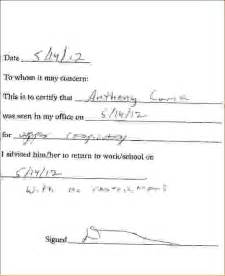 Date 5/14/12
To whom it may concern:
This is to certify that Anthony
was seen in my office on 5/14/12
for upper respiratory
I advised him/her to return to work/school on
5/14/12
With no restrictions
Signed